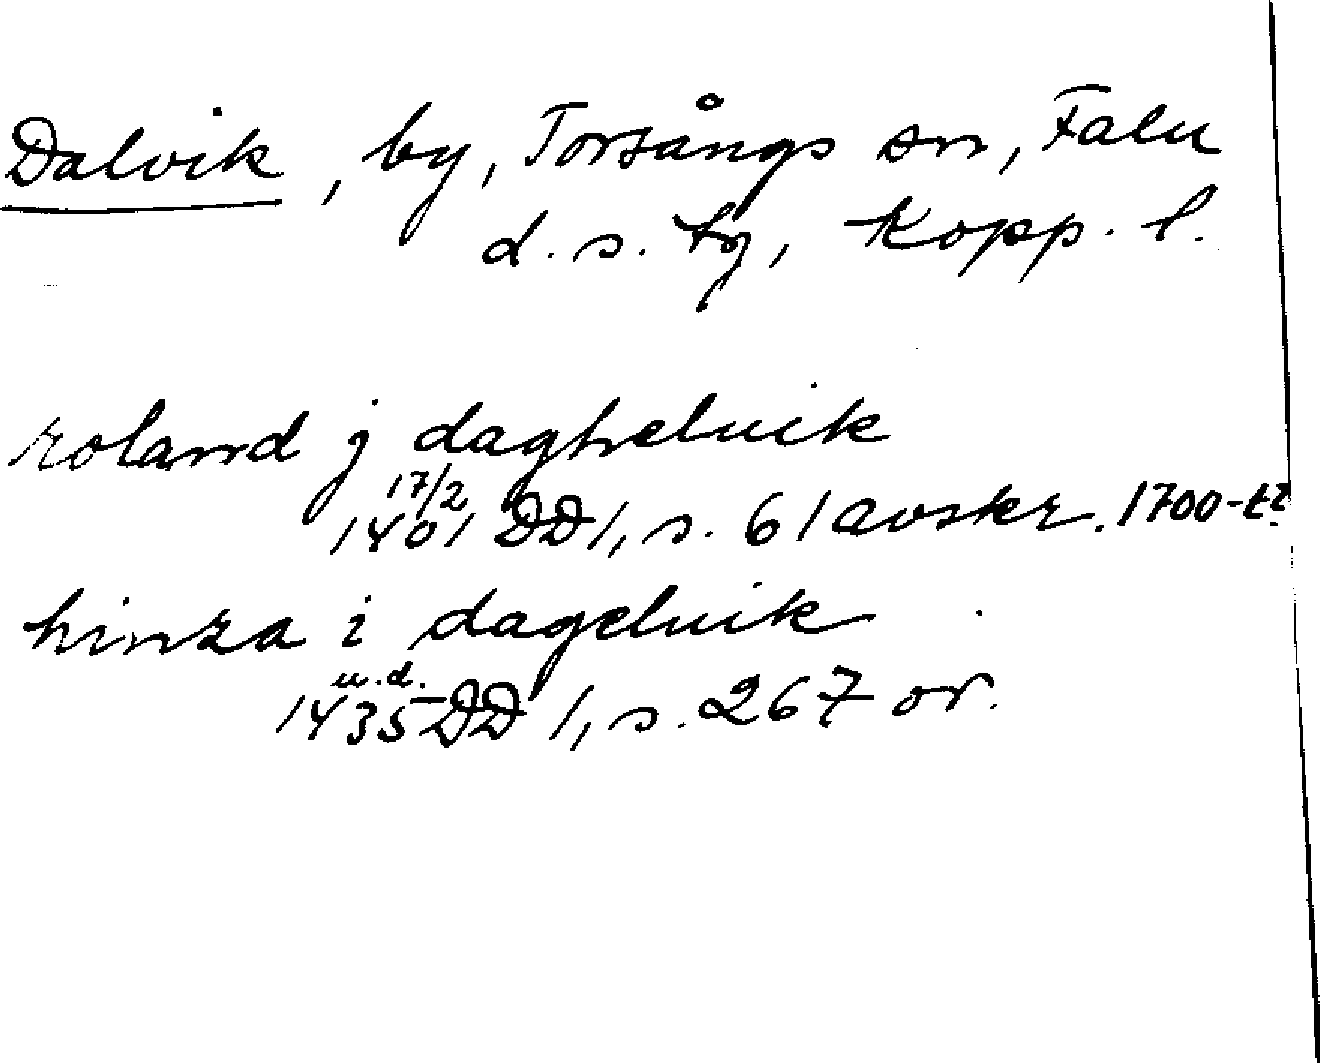 Dalvik, by, Torsångs sn, Falu
d. s. tg, Kopp. l.
roland j dagheluik
17/2
1401 DD 1, s. 61 avskr. 1700-t?
hinza i dageluik
u.d.
1435 DD 1, s. 267 or.